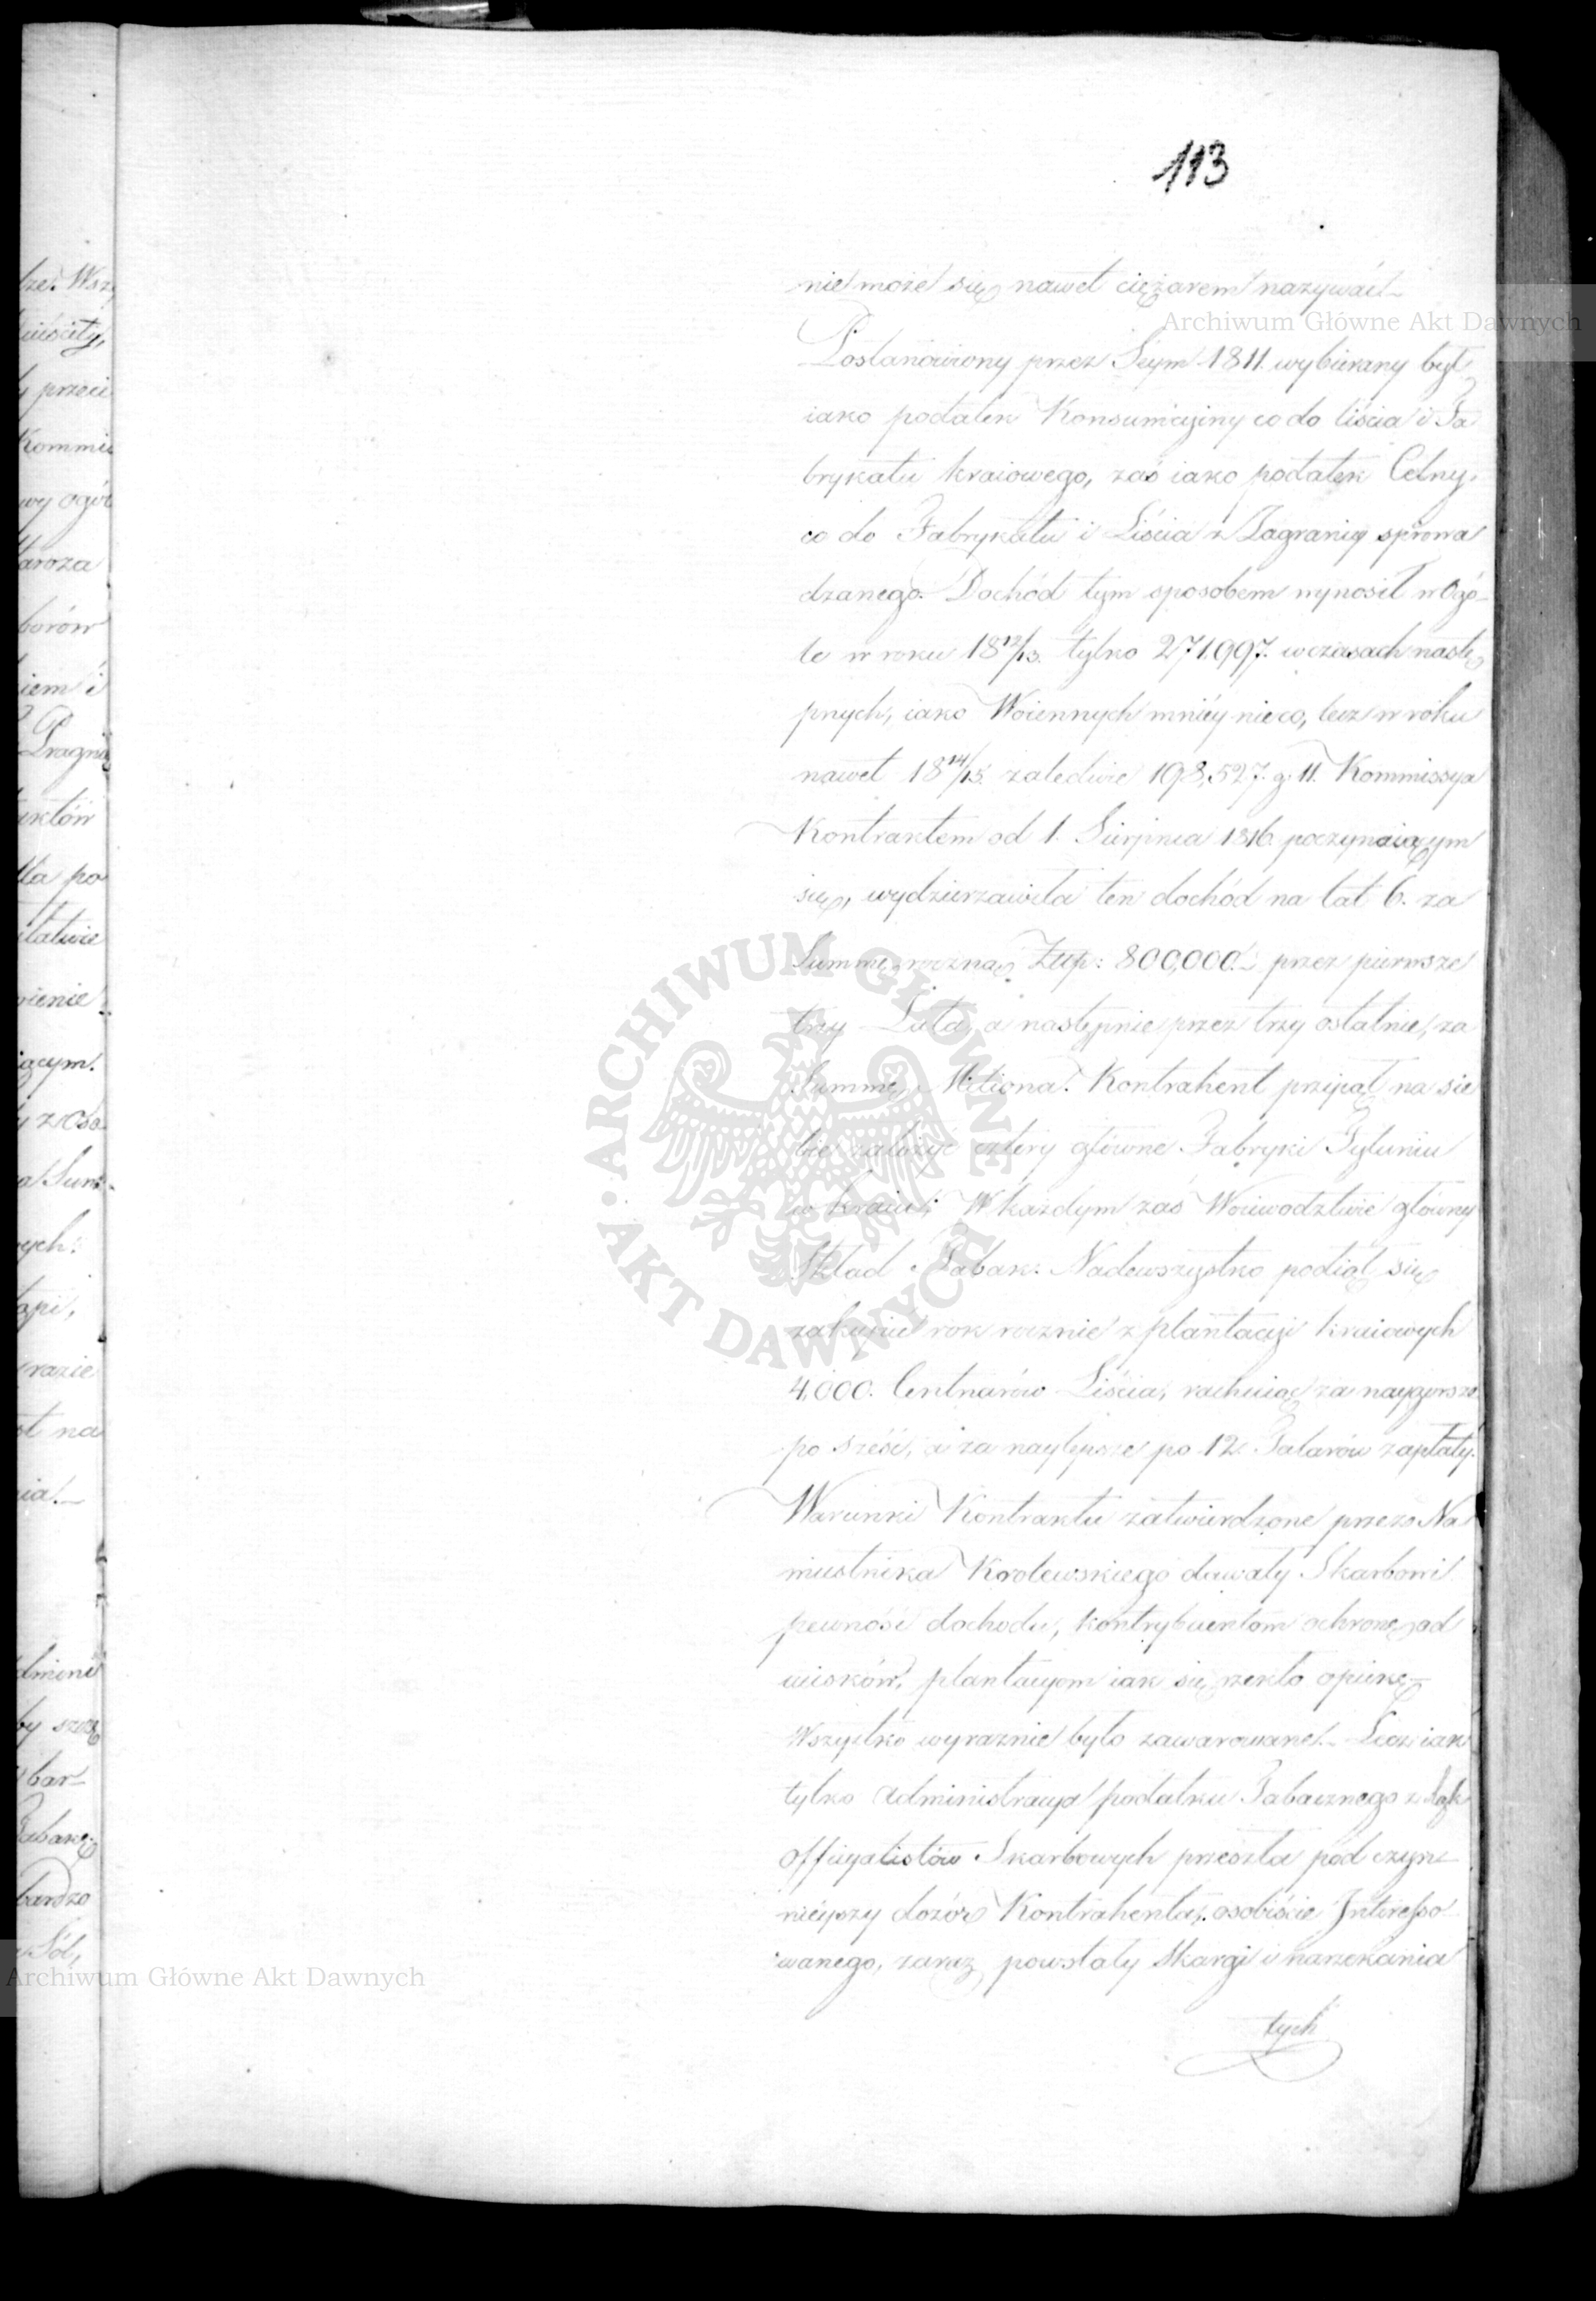 113
nie może się nawet ciężarem nazywać.–
Postanowiony przez Seym 1811. wybierany był
iako podatek Konsumcyiny co do liścia i Fa
brykatu kraiowego, zaś iako podatek Celny,
co do Fabrykatu i Liścia z Zagranicy sprowa
dzanego. Dochód tym sposobem wynosił w Ogó–
le w roku 18 12/13. tylko 271.997. w czasach nastę
pnych, iako Woiennych mniéy nieco, lecz w roku
nawet 18 14/15. zaledwie 198,527. g. 11. Kommissya
Kontraktem od 1. Sierpnia 1816. poczynaiącym
się, wydzierzawiła ten dochód na lat 6. za
Summę roczną Złłp: 800,000.– przez pierwsze
trzy Lata, a następnie przez trzy ostatnie, za
Summę Miliona. Kontrahent przyiął na sie
bie założyć cztéry główne Fabryki Tytuniu
w kraiu; W każdym zaś Woiewodztwie główny
Skład Tabak. Nadewszystko podiął się
zakupić rok rocznie z plantacyi kraiowych
4,000. Centnarów Liścia, rachuiąc za naygorsze
po sześć, a za naylepsze po 12. Talarów zapłaty.
Warunki Kontraktu zatwierdzone przez Na
miestnika Krolewskiego dawały Skarbowi
pewność dochodu, kontrybuentom ochronę od
ucisków, plantacyom iak się rzekło opiekę.–
Wszystko wyraznie było zawarowane.– Lecz iak
tylko Administracya podatku Tabacznego z Rąk
Officyalistów Skarbowych przeszła pod czyn–
nieyszy dozór Kontrahenta, osobiście Interesso–
wanego, zaraz powstały Skargi i narzekania
tych
ze. Wsz
przeci
Kommis
wy ogól
borów
iem i
Pragną
ła po
iącym.
z Oso
ych.
ąpi,
razie
t na
nia.–
dmini
by szcz
bar–
Tabakę
bardzo
Sól,
Archiwum Główne Akt Dawnych
ARCHIWUM GŁÓWNE AKT DAWNYCH
Archiwum Główne Akt Dawnych